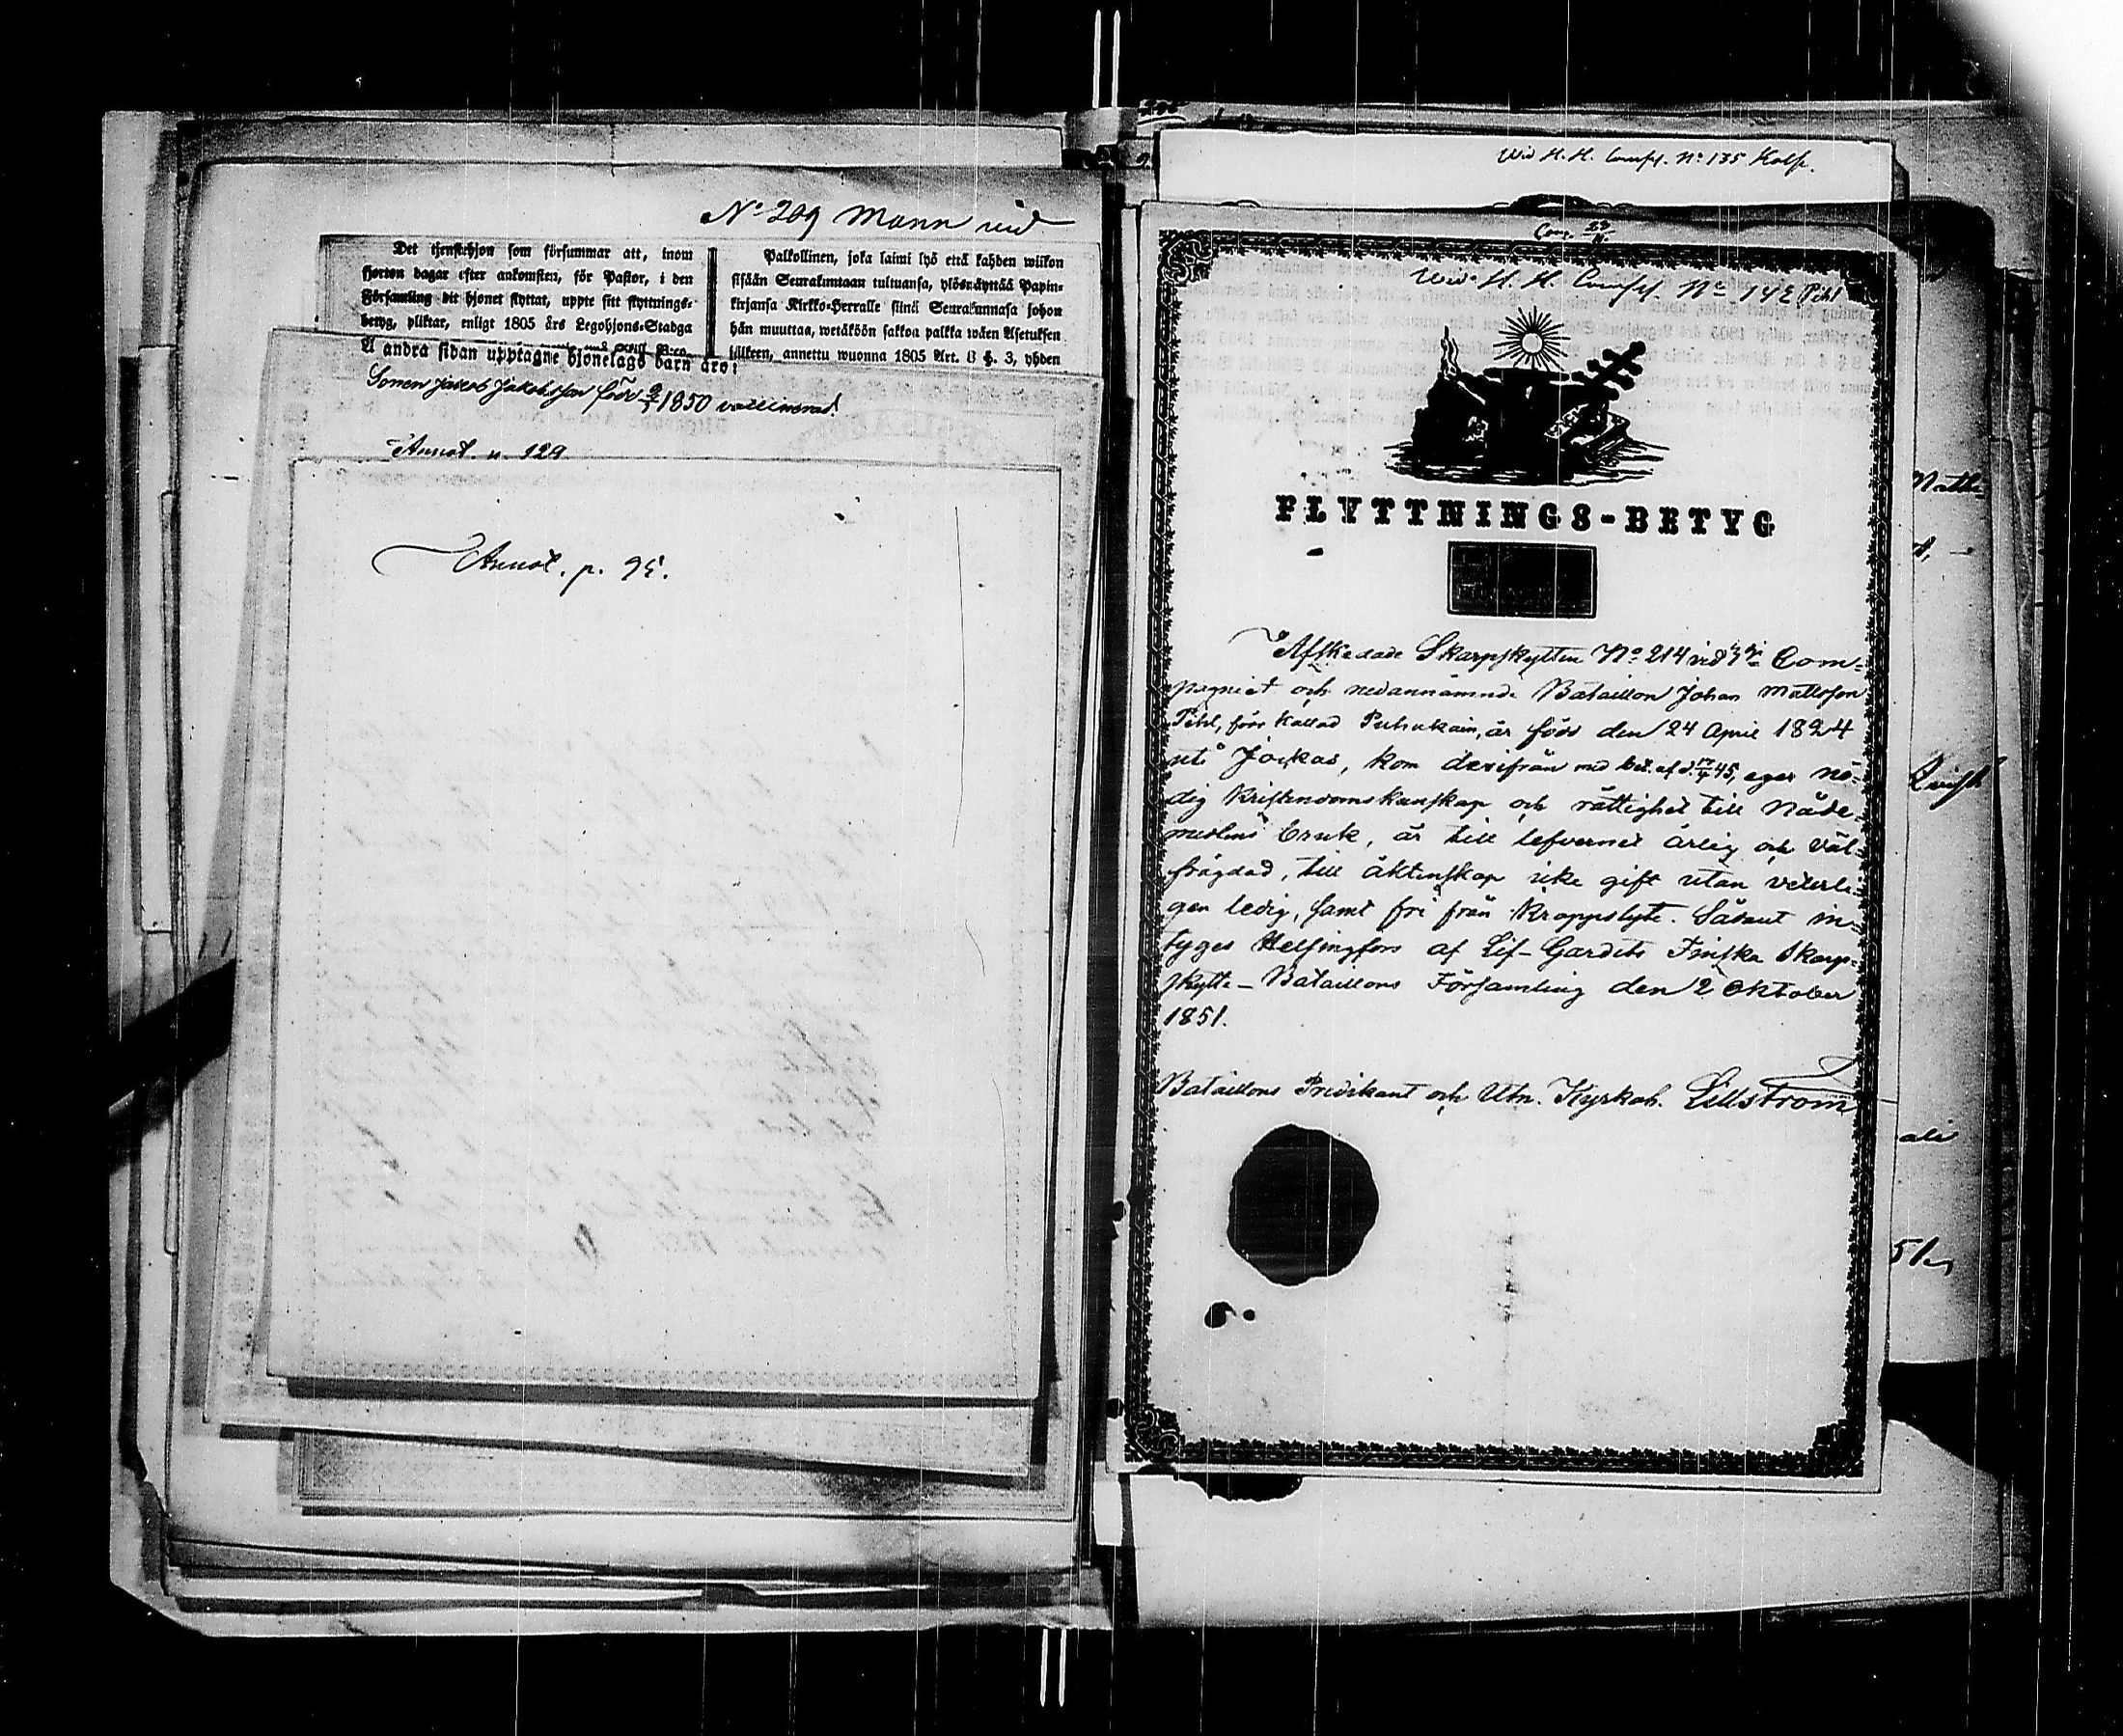 No 209 Mann vid
Det tjenstehjon som försummar att, inom
fjorton dagar efter ankomsten, för Pastor, i den
Församling dit hjonet flyttat, uppte sitt flyttnings-
betyg, pliktar, enligt 1805 års Legohjons-Stadga
Palkollinen, joka laimi lyö että kahden wiikon
sisään Seurakuntaan tultuansa, ylösnäyttää Papin-
kirjansa Kirkko-Herralle siinä Seurakunnasa johon
hän muuttaa, wetäköön sakkoa palkka wäen Asetuksen
jälkeen, annettu wuonna 1805 Art. 8 §. 3, yhden
Å andra sidan upptagne hjonelags barn äro:
Sonen Jacob Jakobsson född 1850 vaccinerad.
Annot. p. 129
Annot. p. 95.
Wid H. H. Comp. No 135 Kolp.
Wid H. H. Comp. No 142 Pihl
FLYTTNINGS-BETYG
Afskedade Skarpskytten No 214 vid Com-
pagniet och nedannämnde Bataillon Johan Mattsson
Pihl, förr kallad Puhakain, är född den 24 April 1824
uti Jockas, kom derifrån med bet. af d. 45, eger nö-
dig Kristendomskunskap och rättighet till Nåde-
medlens bruk, är till lefvernet ärlig och väl-
frägdad, till äktenskap icke gift utan veterli-
gen ledig, samt fri från Kroppslyte. Sådant in-
tyges Helsingfors af Lif-Gardets Finska Skarp-
skytte-Bataillons Församling den 2 Oktober
1851.
Bataillons Predikant och Utn. Kyrkoh. Lillström